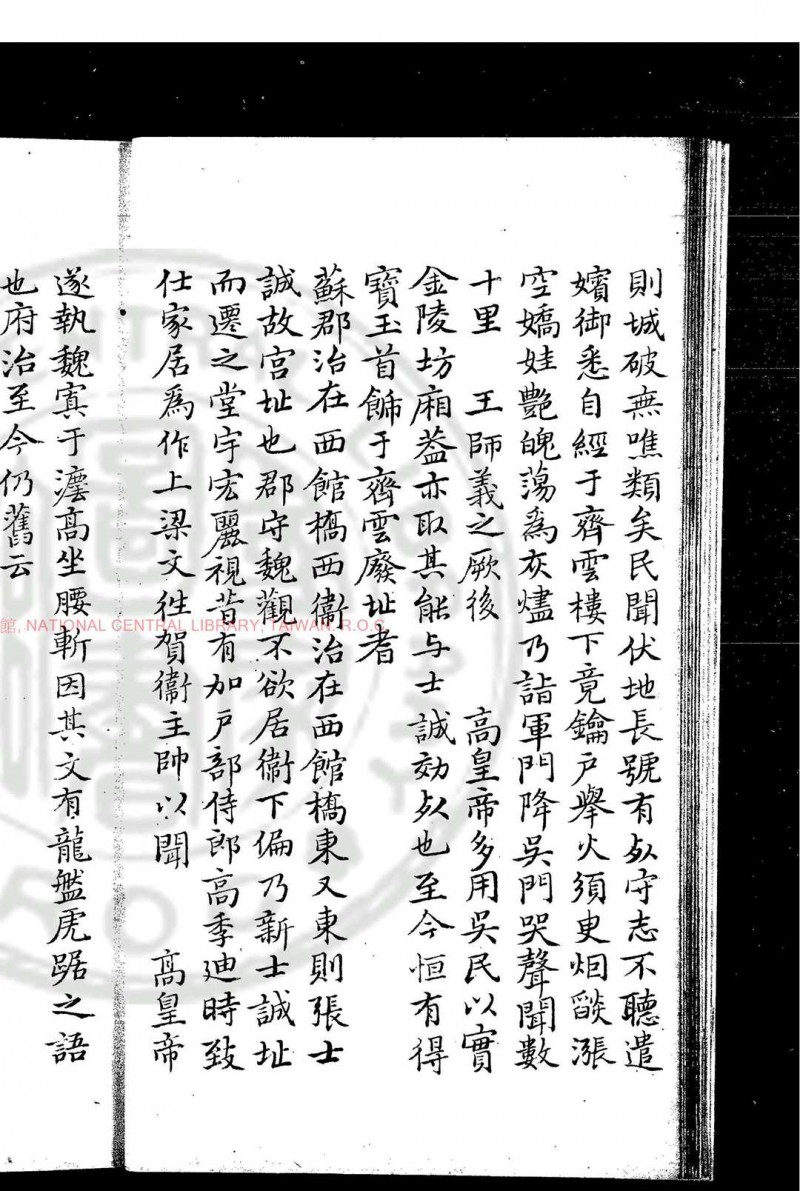 則城破無噍類矣民聞伏地長號有死守志不聽遣
嬪御悉自經于齊雲樓下竟鑰戶舉火須臾烟燄漲
空嬌娃艷魄蕩爲灰燼乃詣軍門降吳門哭聲聞數
十里　王師義之厥後　　高皇帝多用吳民以實
金陵坊廂葢亦取其能与士誠効死也至今恒有得
寶玉首飾于齊雲廢址者
蘇郡治在西館橋西衞治在西館橋東又東則張士
誠故宮址也郡守魏觀不欲居衞下偏乃新士誠址
而遷之堂宇宏麗視昔有加戶部侍郎高季迪時致
仕家居爲作上梁文徃賀衞主帥以聞　　高皇帝
遂執魏寘于灋高坐腰斬因其文有龍盤虎踞之語
也府治至今仍舊云
館, NATIONAL CENTRAL LIBRARY, TAIWAN, R.O.C.